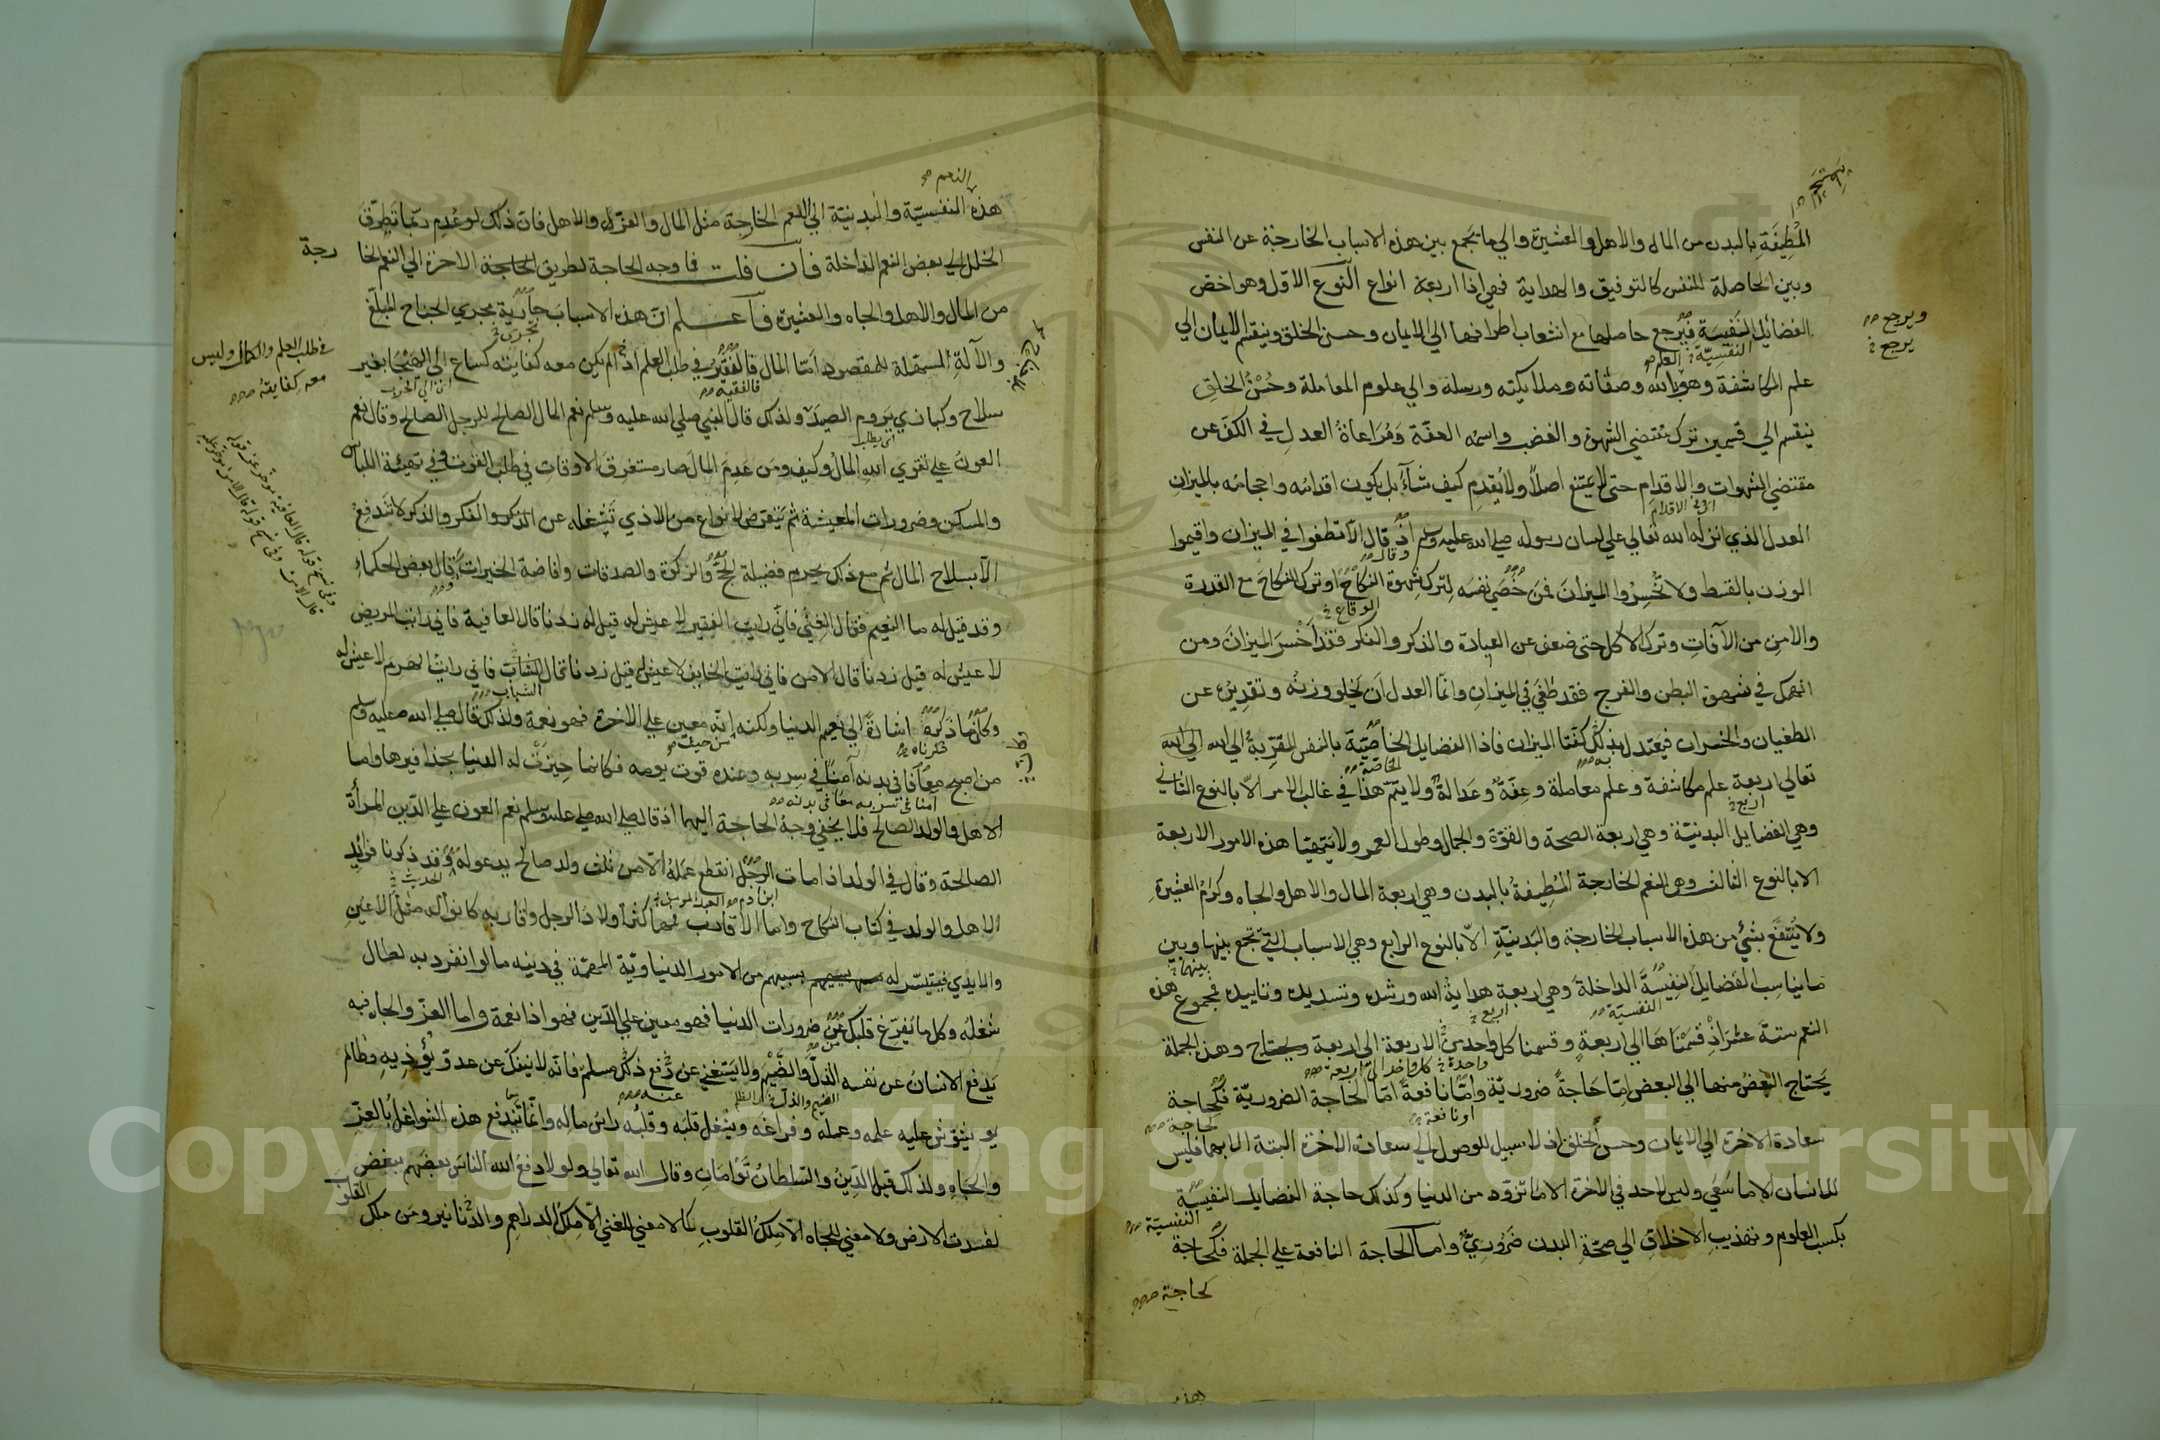 المُطِيفَةِ بالبدن من المال والاهل والعشيرة والي ما يجمع بين هذه الاسباب الخارجة عن النفس
وبين الحاصلة للنفس كالتوفيق والهداية فهي اذا اربعة انواع النوع الاول وهو اخص
الفضائل النفيسة فيرجع حاصلها مع انشعاب اطرافها الي الايمان وحسن الخلق وينقسم الايمان الي
ويرجع
يرجع خ
النفسيّة خ العلم
علم المكاشفة وهو بالله وصفاته وملايكته ورسله والي علوم المعاملة وحُسْنُ الخلقِ
ينقسم الي قسمين ترك مقتضي الشهوة والغضب واسمه العفّة وَمُرَاعاةُ العدلِ في الكفّ عن
مقتضي الشهوات والاقدامِ حتى لا يمتنع اصلاً ولا يُقدِم كيف شآءَ بل يكون اقدامُه واحجامُه بالميزانِ
العدل الذي انزله الله تعالي علي لسان رسوله صلي الله عليه وسلم اذ قال الّا تطغوا في الميزان واقيموا
وقال
الوزن بالقسط ولا تُخْسِرُوا الميزانَ فمَن خُصِّي نفسَه لِتركِ شهوة النكاح او ترك النكاحَ مع القدرة
الوقاع خ
والامنِ من الآفاتِ وترك الاكل حتى ضعف عن العبادة والذكر والفكر فقد اَخْسرَ الميزانَ ومن
انهمك في شهوة البطن والفرج فقد طَغَي في الميزان وانّما العدل اَن يخلو وزنُه وتقديرُه عن
الطغيان والخسران فيعتدل بذلك كفّتا الميزان فاذا الفضايل الخاصّيّة بالنفس المقرّبةُ الي الله
به
الخاصّة
تعالي اربعة علم مكاشفة وعلم معاملة وعِفّةٌ وعَدالةٌ ولا يتمّ هذا في غالب الامر الّا بالنوع الثاني
اربع خ
وهي الفضايل البدنيّة وهي اربعة الصحة والقوّة والجمال وطول العمر ولا يتهيّا هذه الامور الاربعة
الا بالنوع الثالث وهو النعم الخارجة المُطِيفةُ بالبدن وهي اربعة المال والاهل والجاه وكرَمُ العشيرةِ
ولا يُنتفَع بشيٍ من هذه الاسباب الخارجة والبدنيّةِ الّا بالنوع الرابع وهي الاسباب التي تجمع بينها وبين
بينهما
ما يناسب الفضايل النفيسَةَ الداخلة وهي اربعة هدايةُ الله ورشده وتسديده وتاييده فمجموع هذه
النفسيّة
النعم ستةَ عشرَ اذْ قسَمْناها الي اربعةٍ وقسمنا كل واحد من الاربعة الي اربعة وهذه الجملة
يَحتاج البعضُ منها الي البعض اِمّا حَاجةً ضروريّة وامّا نافعةً امّا الحاجة الضروريّة فكحاجة
او نافعة
كحاجة
سعادة الاخرة الي الايمان وحسن الخلق اذ لا سبيل للوصول الي سعادة الاخرة البتة الا بهما فليس
للانسان الا ما سَعَي وليس لاحد في الاخرة الا ما تزوّد من الدنيا وكذلك حاجة الفضايل النفيسة
النفسيّة
بكسب العلوم وتهذيب الاخلاق الي صحّةِ البدن ضَرُورِيٌّ وامّا الحاجة النافعة علي الجملة فكحاجة
كحاجة
هذه
النعم
هذه النفسيّة والبدنيّة الي النعم الخارجة مثل المال والعزّ والاهل فان ذلك لو عُدِم ربّما تطرّقَ
الخلل الي بعض النعم الداخلة فان قلت فما وجه الحاجة لطريق الاخرة الي النعم الخا
رجة
من المال والاهل والجاه والعشيرة فاعلم انّ هذه الاسبابَ جاريةٌ مجري الجناح المبلّغ
والآلةِ المسهّلة للمقصود امّا المال فالفقير في طلب العلم اذا لم يكن معه كفايته كساعٍ الي الهيجَا بغير
في طلب العلم والكمال وليس
معه كفاية
فالفقيه
سلاح وكبازي يروم الصيد ولذلك قال النبي صلي الله عليه وسلم نعم المال الصالح للرجل الصالح وقال نعم
العونُ علي تقوي الله المالُ وكيف ومَن عَدِمَ المالَ صار مستغرق الاوقات في طلب القوت وفي تهيئة اللباس
والمسكن وضرورات المعيشة ثم يتعرّض لانواع من الاذي تَشغله عن الذكر والفكر والذكر لا تندفع
الا بسلاح المال ثم مع ذلك يُحرَم فضيلة الحجّ والزكوة والصدقات وافاضة الخيرات وقال بعض الحكماءِ
وقد قيل له ما النعيم فقال الغِنٰي فانّي رايت الفقير لا عيش له قيل له زدنا قال العافية فاني رايت المريض
لا عيش له قيل زدنا قال الامن فاني رايت الخايف لا عيش له قيل زدنا قال الشابّ فاني رايت الهرِم لا عيش له
الشباب
وكأنّ ما ذكره اشارةٌ الي نعيم الدنيا ولكنه انّه معين علي الاخرة فهو نعمة ولذلك قال صلي الله عليه وسلم
ذكرناه
من حيث
من اصبح معافا في بدنه آمنًا في سِربه وعنده قوت يومه فكانما حِيزَتْ له الدنيا بحذافيرها واما
آمنا في سربه معافي بدنه
الاهل والولد الصالح فلا يخفي وجهُ الحاجة اليهما اذ قال صلي الله عليه وسلم نعم العون علي الدّين المرأة
الصالحة وقال في الولد اذا مات الرجلُ انقطع عملُه الّا من ثلث ولد صالح يدعو له وقد ذكرنا فوائد
الحديث
الاهل والولد في كتاب النكاح واما الاقارب فمهما كثر اولاد الرجل واقاربه كانوا له مثلَ الاعين
والايدي فيتيسّر له بسببهم من الامور الدنياويّة المهمّة في دينه ما لو انفرد به لطال
شغلُه وكل ما يُفرّغ قلبَك عن ضرورات الدنيا فهو معين علي الدّين فهو اذا نعمة واما العزّ والجاه فبه
يَدفع الانسانُ عن نفسه الذلَّ والضَّيْمَ ولا يَستغني عن دَفعِ ذلك مسلمٌ فانّه لا ينفكّ عن عدوّ يُؤذِيهِ وظالم
الضيم والذل
عنه
يشوّش عليه علمه وعمله وفراغَه ويشغل قلبَه وقلبُه راسُ مالِه وانّما تندفع هذه الشواغلُ بالعزّ
والجاهِ ولذلك قيل الدّين والسّلطانُ تَوأمانِ وقال الله تعالي ولولا دفعُ الله الناسَ بعضَهم ببعضٍ
لفسدت الارض ولا معني للجاه الّا مِلكُ القلوب كما لا معني للغني الّا مِلك الدراهم والدّنانير ومَن ملك
القلوب